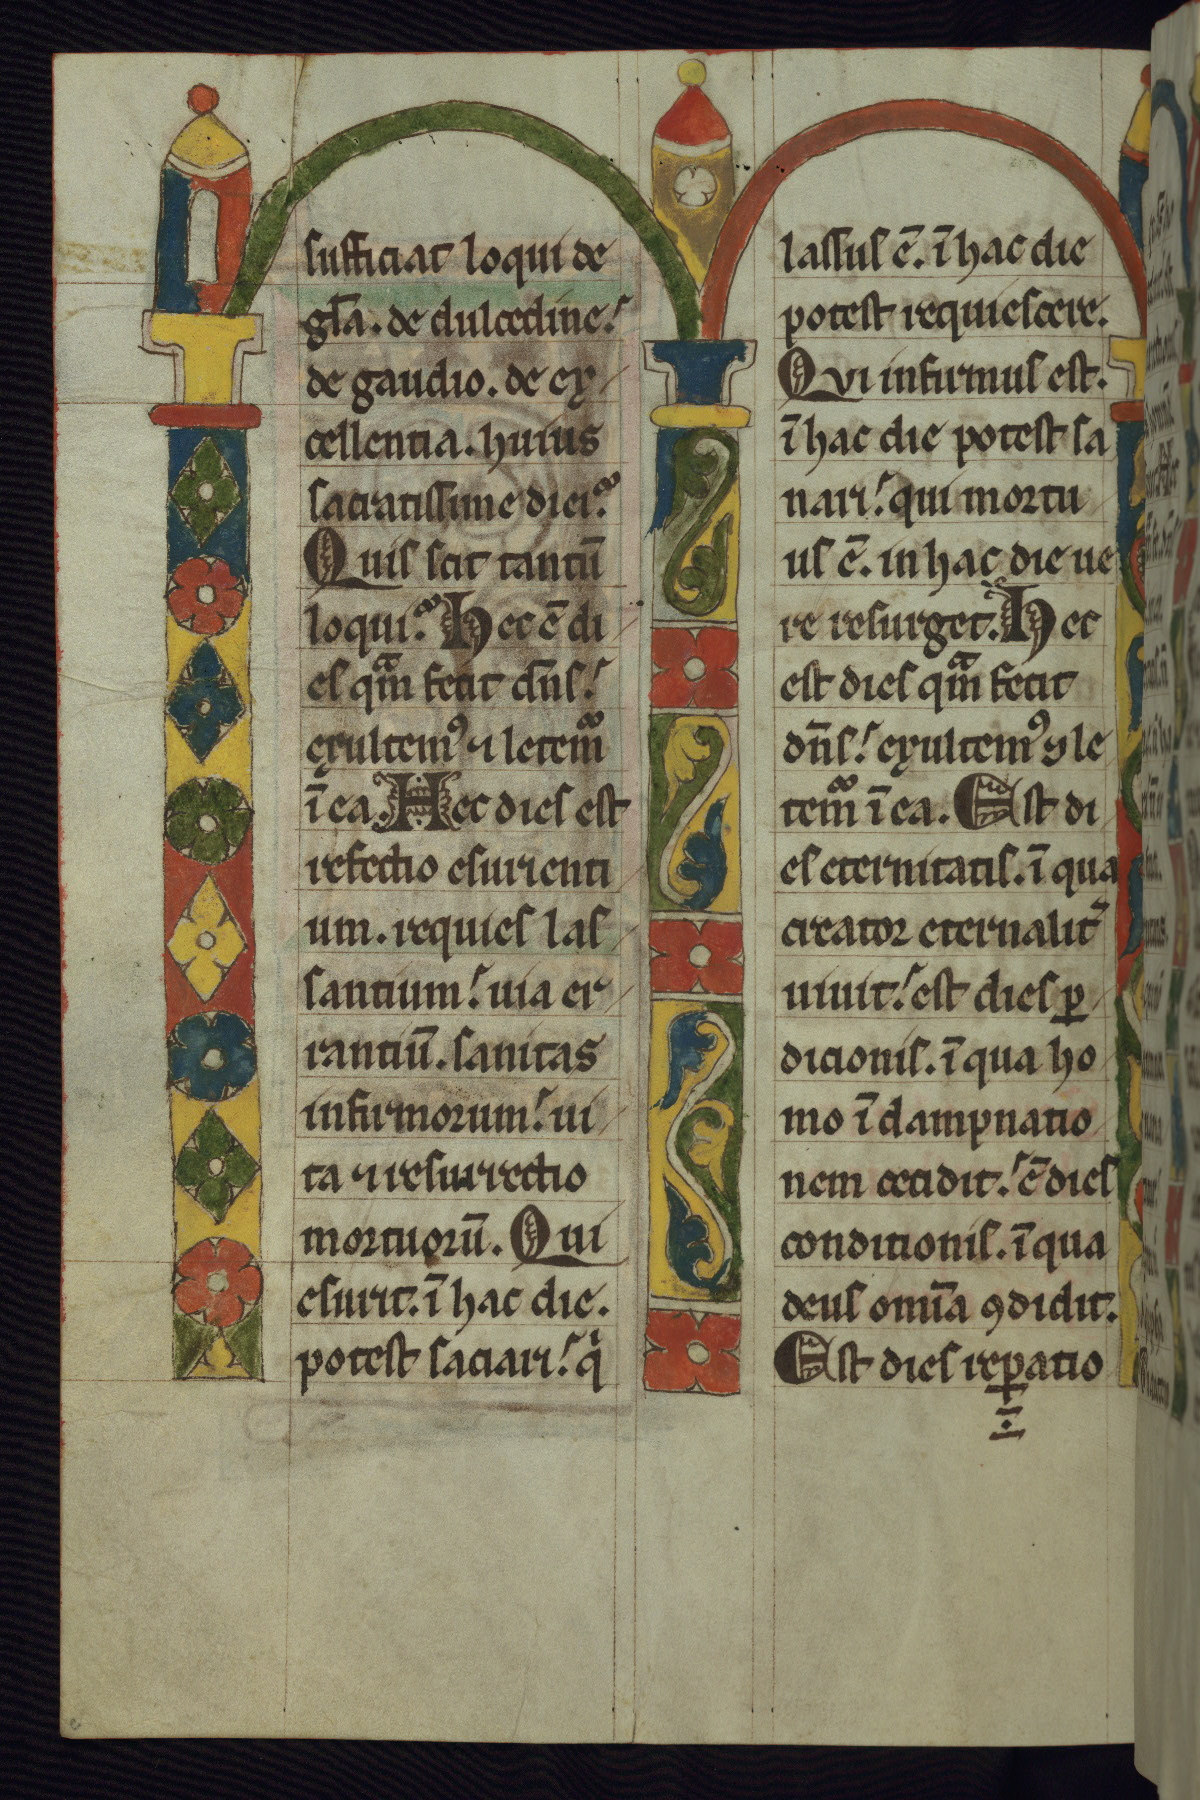 sufficiat loqui de
gl̄a. de dulcedine.
de gaudio. de ex
cellentia. huius
sacratissime diei?
Quis scit tantū
loqui? Hec ē di
es quā fecit dn̄s.
exultemꝰ ⁊ letem̄
ī ea. Hec dies est
refectio esurienti
um. requies las
santium. uia er
rantiū. sanitas
infirmorum. ui
ta ⁊ resurrectio
mortuorū. Qui
esurit. ī hac die.
potest saciari. qͥ
lassus ē. ī hac die
potest requiescere.
Qui infirmus est.
ī hac die potest sa
nari. qui mortu
us ē. in hac die ue
re resurget. Hec
est dies quā fecit
dn̄s. exultemꝰ ⁊ le
tem̄ ī ea. Est di
es eternitatis. ī qua
creator eternalit̄
uiuit. est dies ꝑ
dicionis. ī qua ho
mo ī dampnatio
nem cecidit. ē dies
conditionis. ī qua
deus om̄ia ꝯdidit.
Est dies reꝑatio